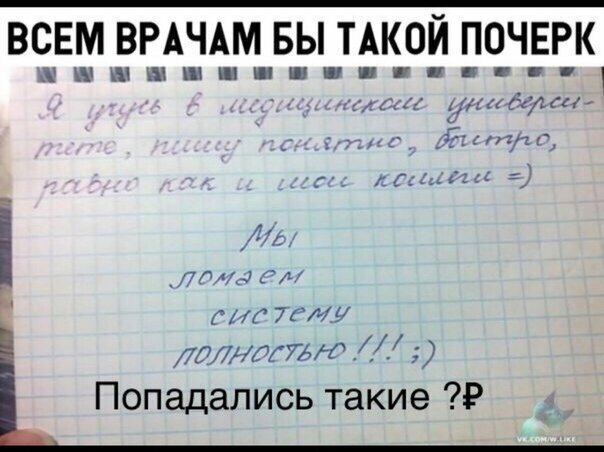 ВСЕМ ВРАЧАМ БЫ ТАКОЙ ПОЧЕРК
Я учусь в медицинском универси-
тете, пишу понятно, быстро,
равно как и мои коллеги =)
Мы
ломаем
систему
полностью!!! ;)
Попадались такие ?₽
VK.COM/W.LIKE